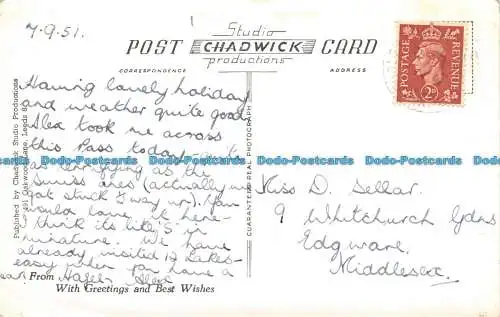 7.9.51.
Studio
POST CHADWICK CARD
productions
CORRESPONDENCE ADDRESS
POSTAGE REVENUE
2D
Having lovely holiday
and weather quite good
Alex took me across
this Pass today
as terrifying as the
Swiss ones (actually we
got stuck ½ way up). You
would love it here-
think its like S. in
minature. We have
already visited 12 Lakes-
easy when you have a
car From Alex
With Greetings and Best Wishes
Miss D. Sellar.
9 Whitchurch Gdns
Edgware.
Middlesex.
Published by Chadwick Studio Productions
Oakwood Lane, Leeds 8
GUARANTEED REAL PHOTOGRAPH
Postcards-Today.com Postcards-Today.com Postcards-Today.com Postcards-Today.com